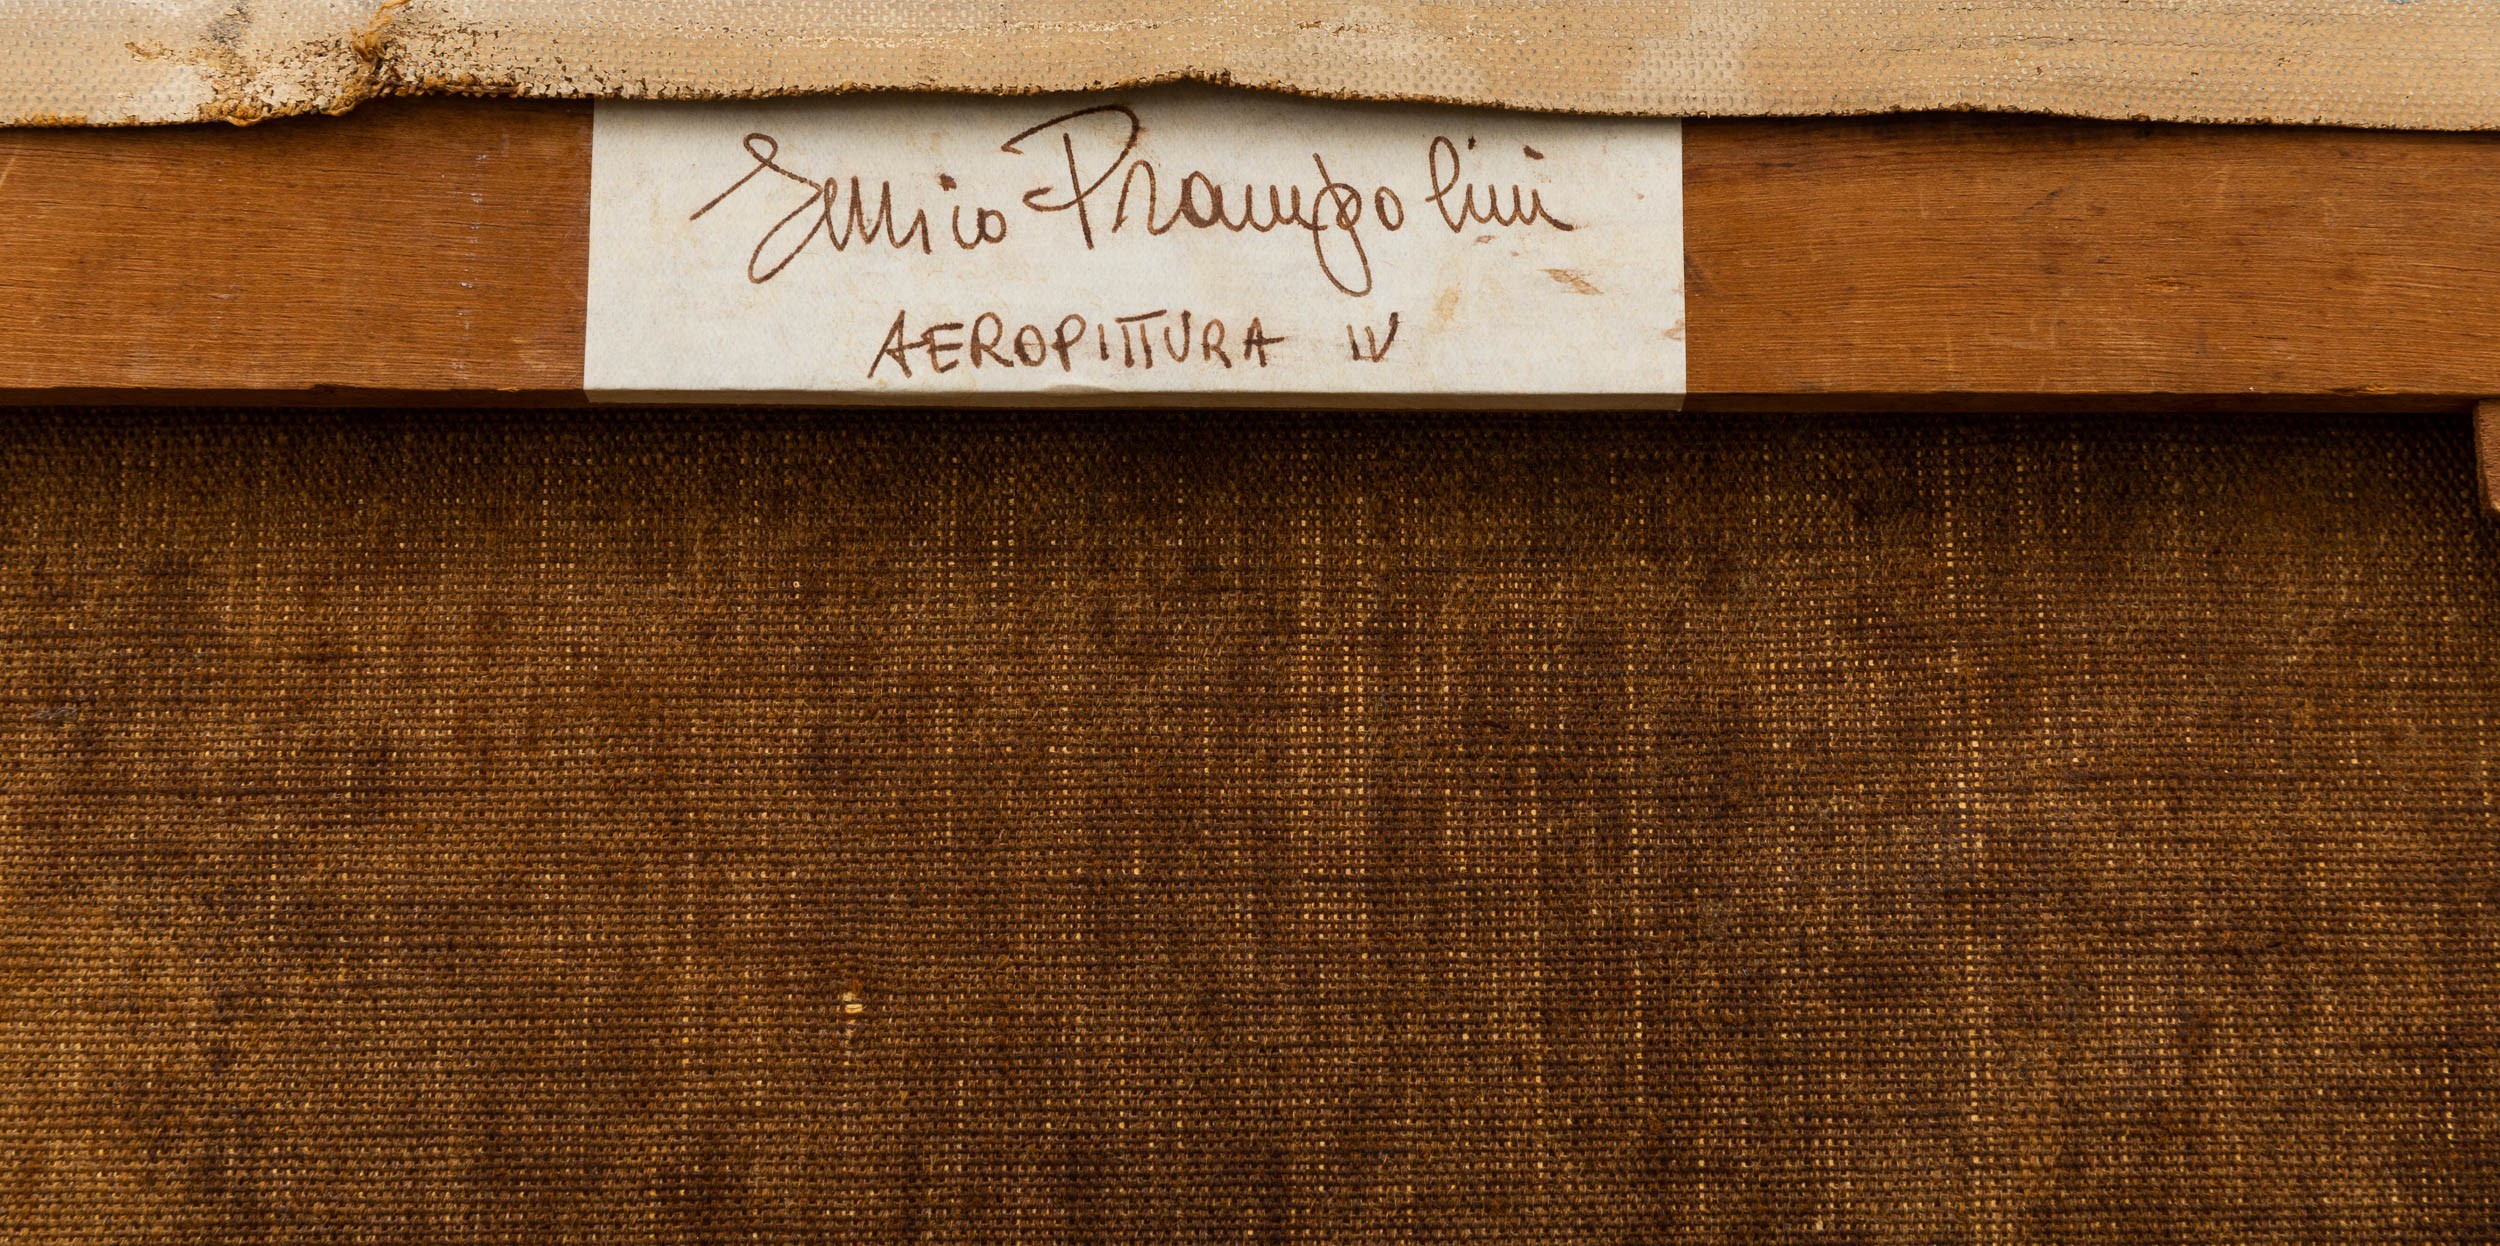 Enrico Prampolini
AEROPITTURA IV